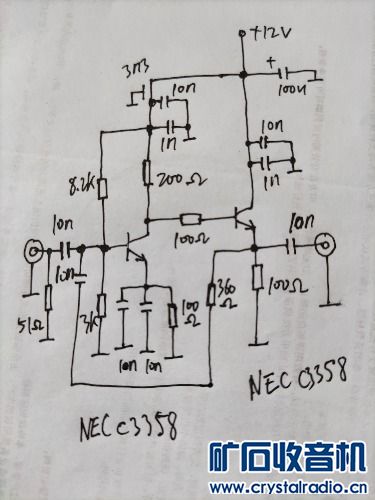 +12V
3n3
10n
+
100u
1n
10n
8.2K
200Ω
1n
10n
10n
100Ω
10n
51Ω
3K
100Ω
360Ω
100Ω
10n
10n
NEC C3358
NEC C3358
矿石收音机
www.crystalradio.cn